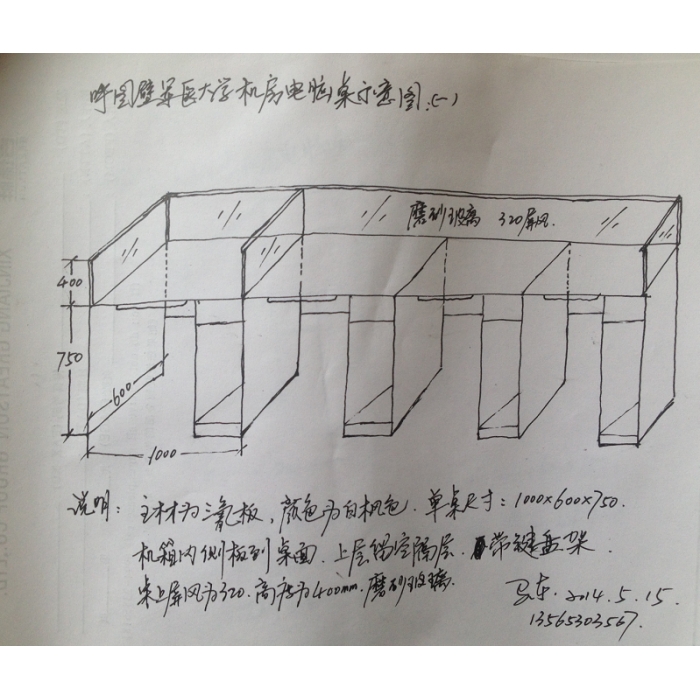 呼图壁军医大学机房电脑桌示意图:(一)
磨砂玻璃 320屏风.
400
750
600
1000
说明: 主材为三氰板, 颜色为白枫色. 单桌尺寸: 1000×600×750.
机箱内侧板到桌面. 上层留空隔层. 带键盘架.
桌上屏风为320. 高度为400mm. 磨砂玻璃.
2014.5.15
13565303567.
XINJIANG GREATSUN GROUP CO.,LTD.